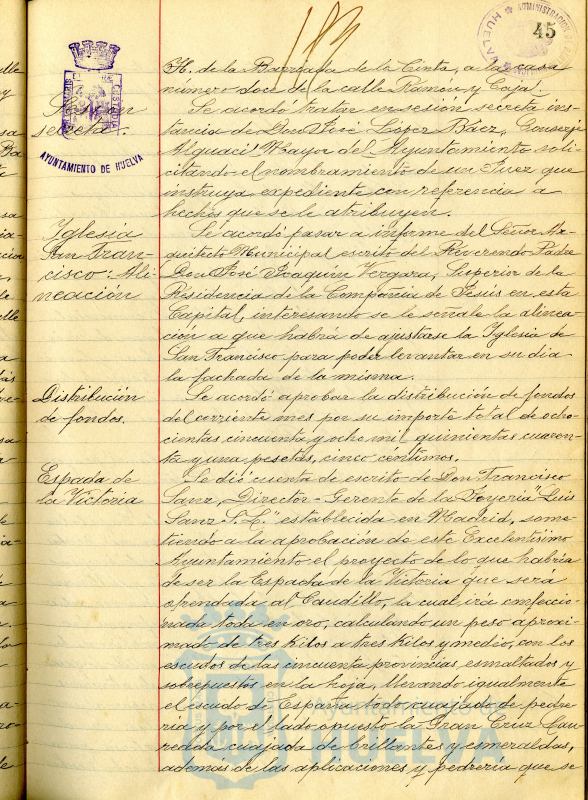 183
45
ADMINISTRACION
HUELVA
H. de la Barriada de la Cinta, a la casa
número doce de la calle Ramon y Cajal.
Sesion
secreta.
AYUNTAMIENTO DE HUELVA
Se acordó tratar en sesión secreta ins-
tancia de Don José López Báez, Conserje
Alguacil Mayor del Ayuntamiento soli-
citando el nombramiento de un Juez que
instruya expediente con referencia a
hechos que se le atribuyen.
Iglesia
San Fran-
cisco: Ali-
neación
Se acordó pasar a informe del Señor Ar-
quitecto Municipal escrito del Reverendo Padre
Don José Joaquín Vergara, Superior de la
Residencia de la Compañía de Jesús en esta
Capital, interesando se le señale la alinea-
ción a que habrá de ajustarse la Iglesia de
San Francisco para poder levantar en su dia
la fachada de la misma.
Distribución
de fondos.
Se acordó aprobar la distribución de fondos
del corriente mes por su importe total de ocho-
cientas cincuenta y ocho mil quinientas cuaren-
ta y una pesetas, cinco centimos.
Espada de
la Victoria
Se dió cuenta de escrito de Don Francisco
Sanz, Director-Gerente de la Joyería "Luis
Sanz S.L." establecida en Madrid, some-
tiendo a la aprobación de este Excelentísimo
Ayuntamiento el proyecto de lo que habría
de ser la Espada de la Victoria que será
ofrendada al Caudillo, la cual irá confeccio-
nada toda en oro, calculando un peso aproxi-
mado de tres kilos a tres kilos y medio, con los
escudos de las cincuenta provincias, esmaltados y
sobrepuestos en la hoja, llevando igualmente
el escudo de España todo cuajado de pedre-
ría y por el lado opuesto la Gran Cruz Lau-
reada cuajada de brillantes y esmeraldas,
además de las aplicaciones y pedrería que se
Ayuntamiento
HUELVA